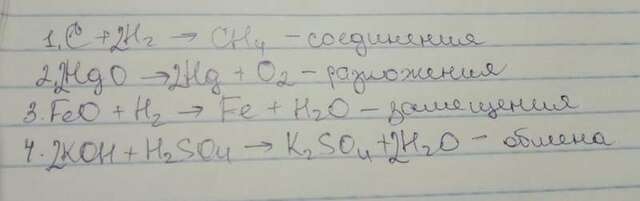 1. C + 2H2 → CH4 – соединения
2. 2HgO → 2Hg + O2 – разложения
3. FeO + H2 → Fe + H2O – замещения
4. 2KOH + H2SO4 → K2SO4 + 2H2O – обмена